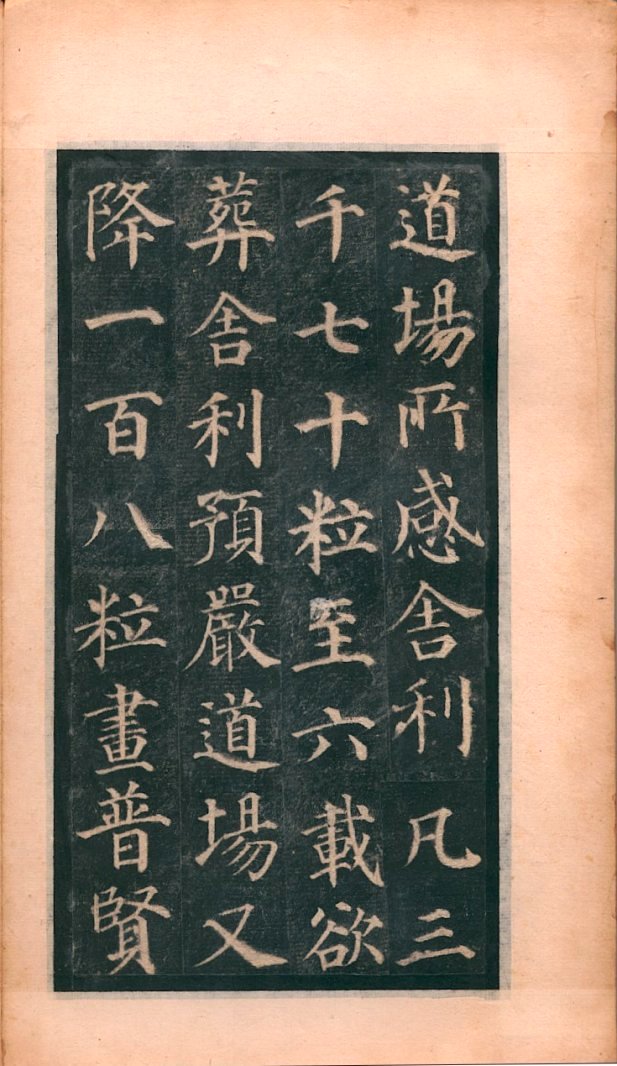 道場所感舍利凡三
千七十粒至六載欲
葬舍利預嚴道場又
降一百八粒畫普賢